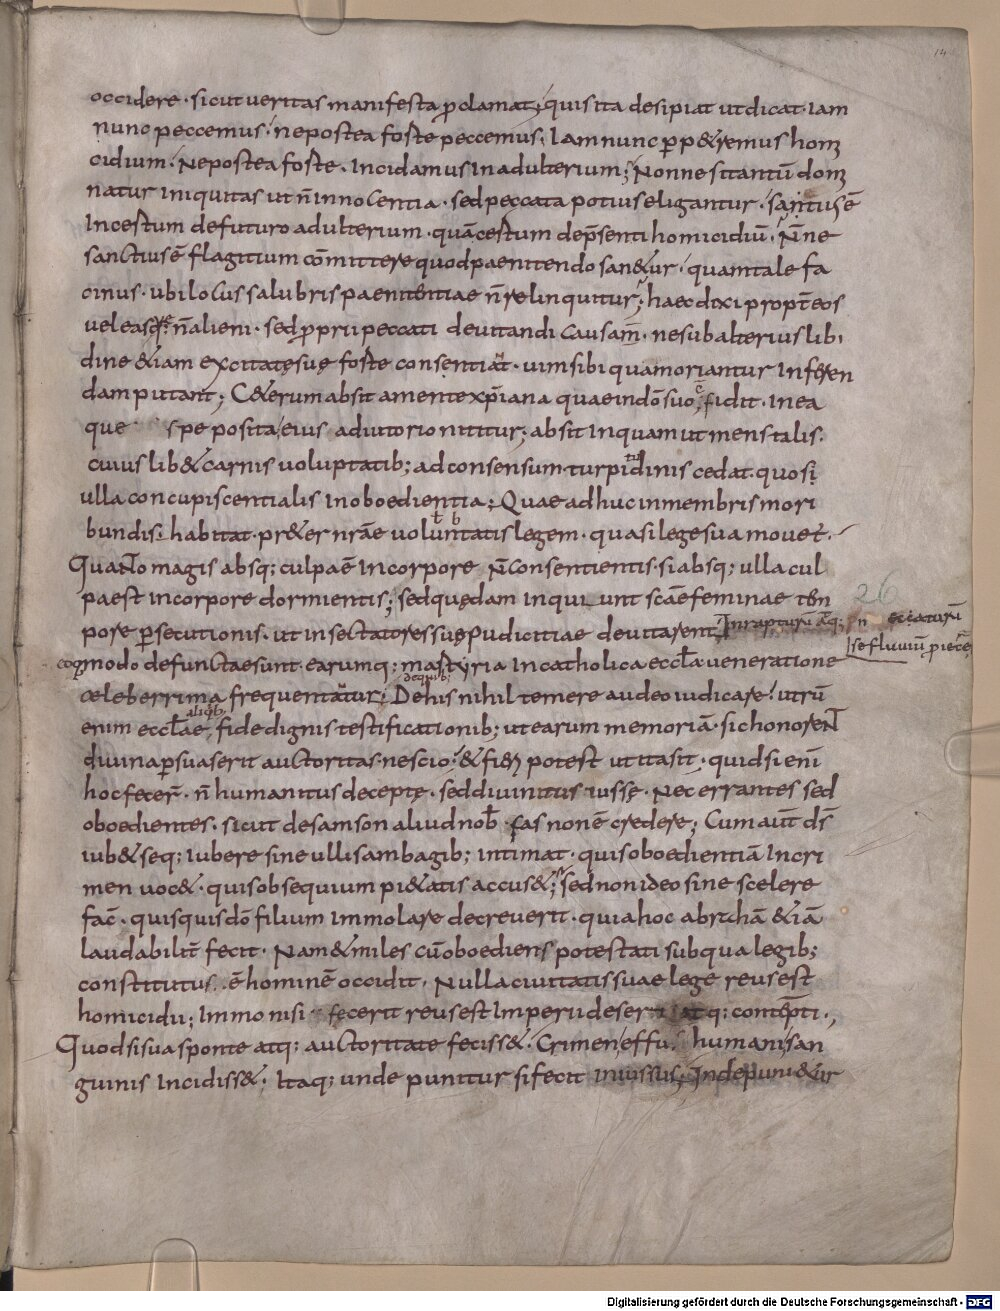 14
occidere · sicut ueritas manifesta ꝓclamat; quis ita desipiat ut dicat · Iam
nunc peccemus · ne postea forte peccemus; Iam nunc ꝑp&remus homi
cidium · Ne postea forte · Incidamus In adulterium; Nonne si tantū domi
natur iniquitas ut n̄ Innocentia · sed peccata potius eligantur · satius ē
Incestum de futuro adulterium · quā certum de p̄senti homicidiū · N̄ne
sanctius ē flagitium cōmittere quod paenitendo san&ur · quam tale fa
cinus · ubi locus salubris paenitentiae n̄ relinquitur; haec dixi propt̄ eos
uel eas q̨ n̄ alieni · sed ꝓprii peccati deuitandi causam̄ · ne sub alterius libi
dine &iam excitatę suę forte consentiāt · uim sibi qua moriantur Inferen
dam putant; C&erum absit a mente xp̄iana quae in dō suo fidit · In ea
que spe posita eius adiutorio nititur; absit Inquam ut mens talis
cuius lib& carnis uoluptatib; ad consensum turpitudinis cedat · quo si
ulla concupiscentialis Inoboedientia; Quae adhuc in membris mori
bundis · habitat · pr&er nr̄ae uoluntatis legem · quasi lege sua mouet ·
Quanto magis absq; culpa ē In corpore N̄ consentientis · si absq; ulla cul
pa est In corpore dormientis; sed quędam Inquiunt sc̄ae feminae tem
pore ꝑsecutionis · ut Insectatores suę pudicitiae deuitarent In rapturū aq; n ecaturū
se fluuiū piecer̄
eoq; modo defunctae sunt · earumq; martyria In catholica eccl̄a ueneratione
celeberrima frequentatur; De his nihil temere audeo iudicare · utrū
de quib;
enim eccl̄ae fide dignis testificationib; ut earum memoriā · sic honorent
aliqb;
diuina ꝑsuaserit auctoritas · nescio · & fieri potest ut ita sit · quid si eni
hoc fecer̄ · n̄ humanitus deceptę · sed diuinitus iussę · Nec errantes sed
oboedientes · sicut de samson aliud nob̄ fas non ē credere; Cum aūt ds̄
iub& seq; Iubere sine ullis ambagib; Intimat · quis oboedientiā In cri
men uoc& · quis obsequium pi&atis accus&; sed non ideo sine scelere
fac̄ · quisquis dō filium Immolare decreuerit · quia hoc abrahā &iā
laudabilit̄ fecit · Nam & miles cū oboediens potestati sub qua legib;
constitutus · ē hominē occidit · Nulla ciuitatis suae lege reus est
homicidii; Immo nisi fecerit reus est Imperii deser atq; contēpti ·
Quod si sua sponte atq; auctoritate feciss& · Crimen effu humani san
guinis Incidiss& · Itaq; unde punitur si fecit iniussus · Inde puni&ur
26
Digitalisierung gefördert durch die Deutsche Forschungsgemeinschaft · DFG